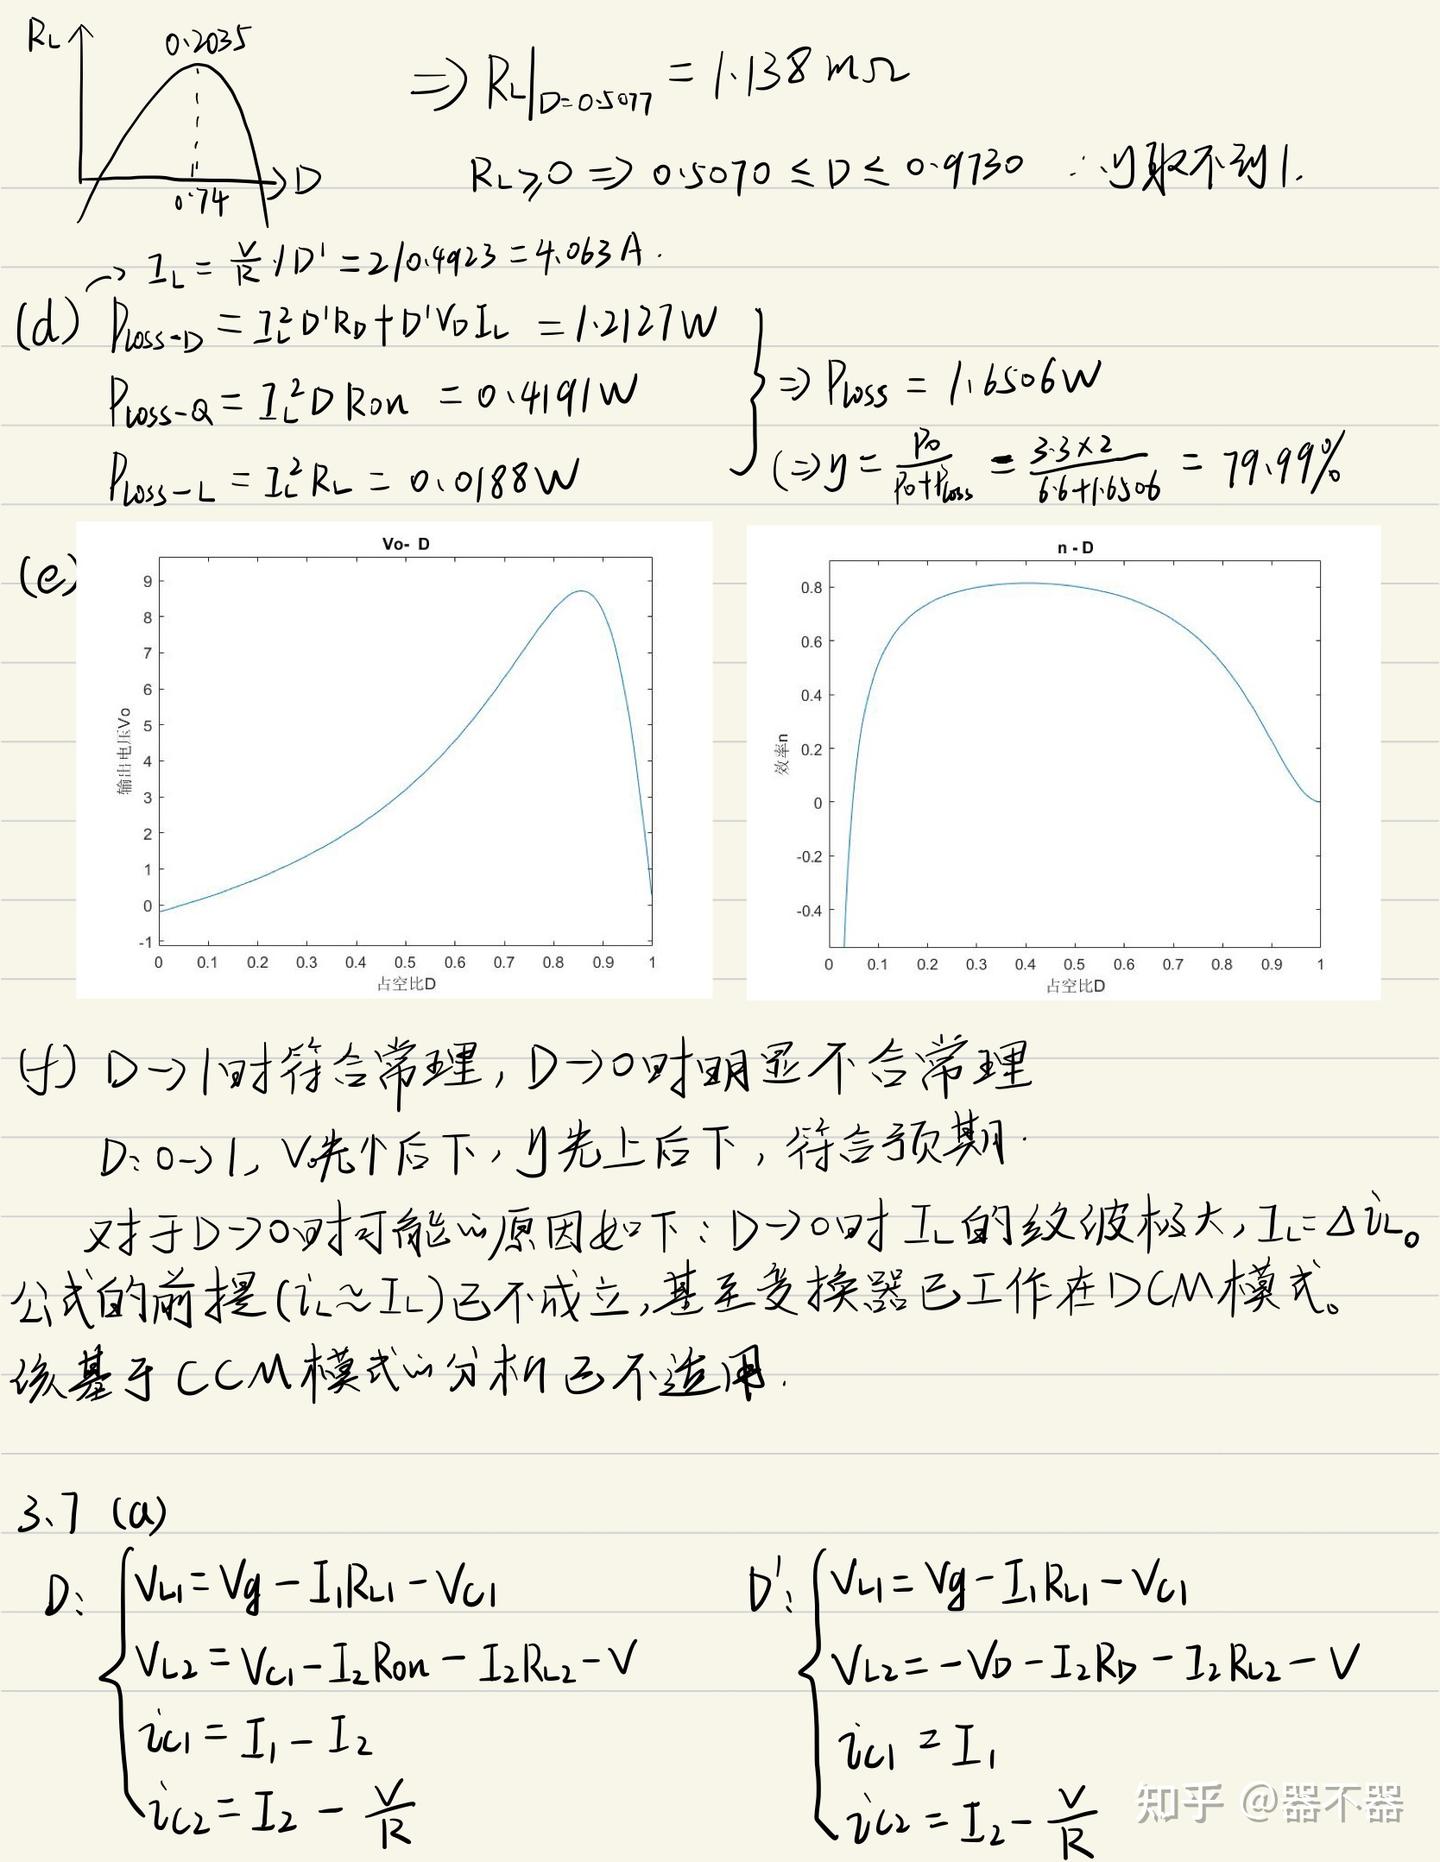 R_L
0.2035
0.74
D
⇒ R_L|_{D=0.5077} = 1.138 mΩ
R_L ≥ 0 ⇒ 0.5070 ≤ D ≤ 0.9730 ∴ η取不到1.
→ I_L = V/R / D' = 2/0.4923 = 4.063A.
(d) P_{loss-D} = I_L² D'R_D + D'V_D I_L = 1.2127W
P_{loss-Q} = I_L² D Ron = 0.4191W
P_{loss-L} = I_L² R_L = 0.0188W
⇒ P_{loss} = 1.6506W
(⇒ η = Po/(Po+P_{loss}) = 3.3×2/(6.6+1.6506) = 79.99%
(e)
Vo- D
9
8
7
6
5
4
3
2
1
0
-1
0 0.1 0.2 0.3 0.4 0.5 0.6 0.7 0.8 0.9 1
输出电压Vo
占空比D
n - D
0.8
0.6
0.4
0.2
0
-0.2
-0.4
0 0.1 0.2 0.3 0.4 0.5 0.6 0.7 0.8 0.9 1
效率n
占空比D
(f) D→1时符合常理, D→0时明显不合常理
D: 0→1, V先个后下, η先上后下, 符合预期.
对于D→0时可能的原因如下: D→0时 I_L 的纹波极大, I_L=Δi_L。
公式的前提(i_L≈I_L)已不成立,甚至变换器已工作在DCM模式。
该基于CCM模式的分析已不适用.
3.7 (a)
D: { V_{L1} = Vg - I₁R_{L1} - V_{C1}
V_{L2} = V_{C1} - I₂Ron - I₂R_{L2} - V
i_{C1} = I₁ - I₂
i_{C2} = I₂ - V/R
D': { V_{L1} = Vg - I₁R_{L1} - V_{C1}
V_{L2} = -V_D - I₂R_D - I₂R_{L2} - V
i_{C1} = I₁
i_{C2} = I₂ - V/R
知乎 @器不器